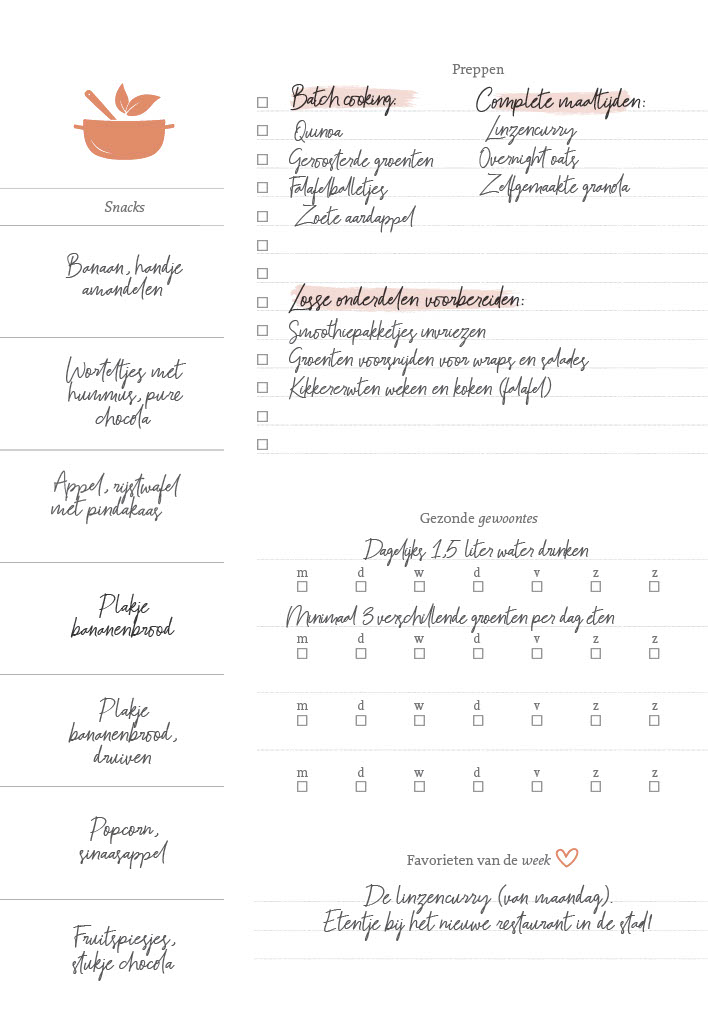 Snacks
Banaan, handje
amandelen
Worteltjes met
hummus, pure
chocola
Appel, rijstwafel
met pindakaas
Plakje
bananenbrood
Plakje
bananenbrood,
druiven
Popcorn,
sinaasappel
Fruitspiesjes,
stukje chocola
Preppen
Batch cooking:
Quinoa
Geroosterde groenten
Falafelballetjes
Zoete aardappel
Complete maaltijden:
Linzencurry
Overnight oats
Zelfgemaakte granola
Losse onderdelen voorbereiden:
Smoothiepakketjes invriezen
Groenten voorsnijden voor wraps en salades
Kikkererwten weken en koken (falafel)
Gezonde gewoontes
Dagelijks 1,5 liter water drinken
m d w d v z z
Minimaal 3 verschillende groenten per dag eten
m d w d v z z
m d w d v z z
m d w d v z z
Favorieten van de week
De linzencurry (van maandag).
Etentje bij het nieuwe restaurant in de stad!